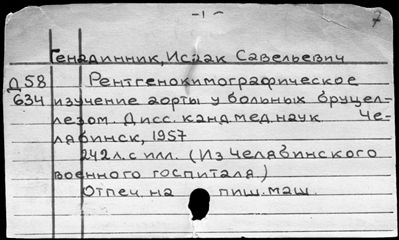 -1-
7
Генадинник, Исаак Савельевич
Д58 Рентгенокимографическое
634 изучение аорты у больных бруцел-
лезом. Дисс. канд. мед. наук Че-
лябинск, 1957
242 л. с илл. (Из Челябинского
военного госпиталя.)
Отпеч. на пиш. маш.